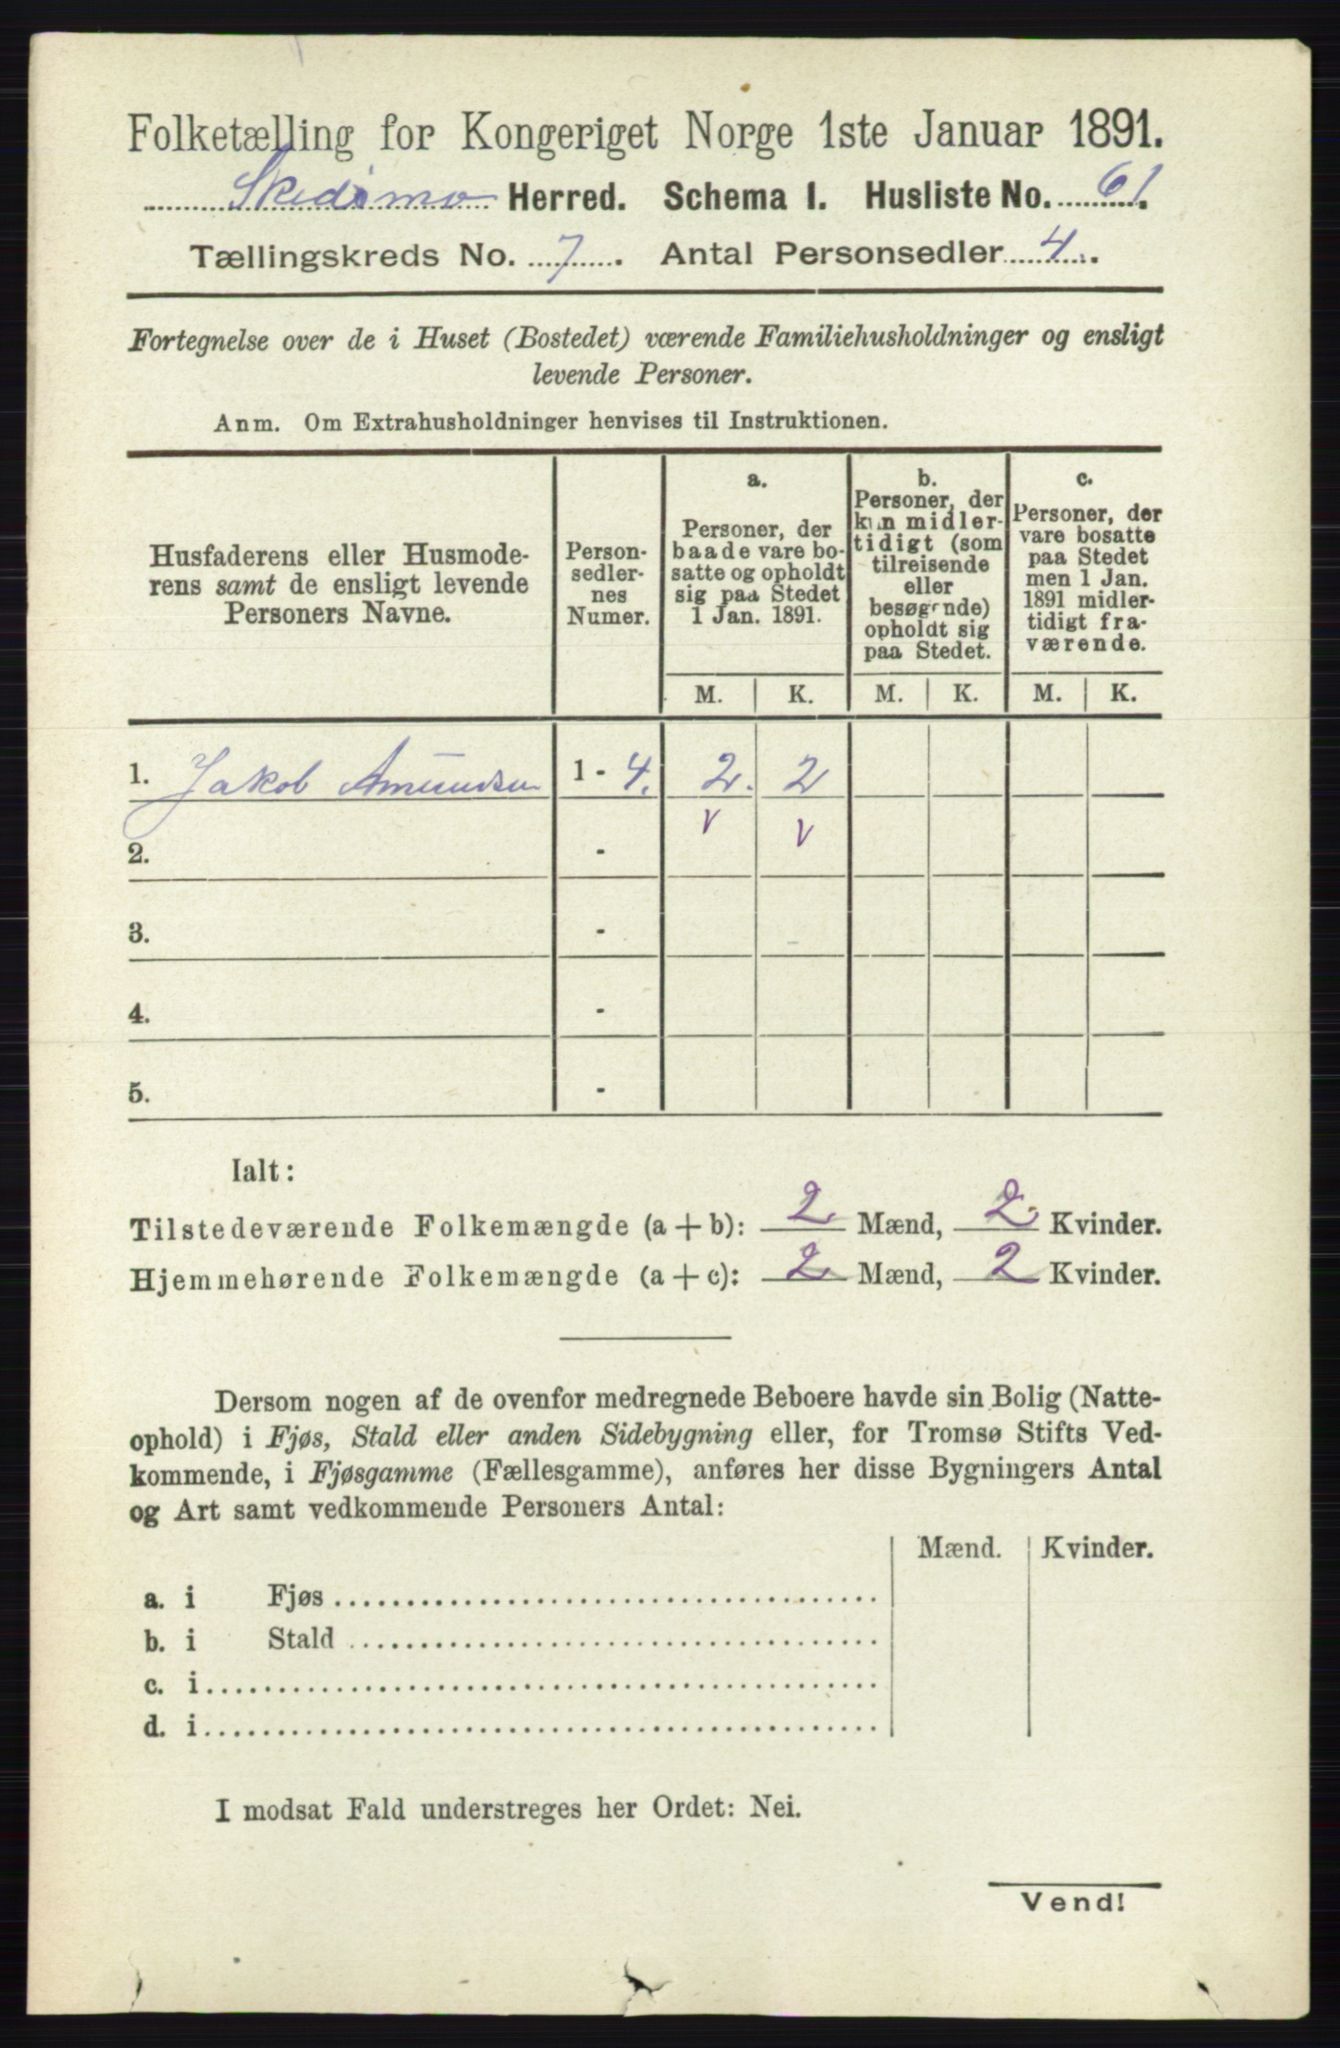 Folketælling for Kongeriget Norge 1ste Januar 1891.
Skedsmo Herred. Schema I. Husliste No. 61.
Tællingskreds No. 7. Antal Personsedler 4.
Fortegnelse over de i Huset (Bostedet) værende Familiehusholdninger og ensligt
levende Personer.
Anm. Om Extrahusholdninger henvises til Instruktionen.
Husfaderens eller Husmode-
rens samt de ensligt levende
Personers Navne.
Person-
sedler-
nes
Numer.
a.
Personer, der
baade vare bo-
satte og opholdt
sig paa Stedet
1 Jan. 1891.
b.
Personer, der
kun midler-
tidigt (som
tilreisende
eller
besøgende)
opholdt sig
paa Stedet.
c.
Personer, der
vare bosatte
paa Stedet
men 1 Jan.
1891 midler-
tidigt fra-
værende.
M. K. M. K. M. K.
1. Jakob Amundsen 1 - 4. 2. 2
v v
2. -
3. -
4. -
5. -
Ialt:
Tilstedeværende Folkemængde (a + b): 2 Mænd, 2 Kvinder.
Hjemmehørende Folkemængde (a + c): 2 Mænd, 2 Kvinder.
Dersom nogen af de ovenfor medregnede Beboere havde sin Bolig (Natte-
ophold) i Fjøs, Stald eller anden Sidebygning eller, for Tromsø Stifts Ved-
kommende, i Fjøsgamme (Fællesgamme), anføres her disse Bygningers Antal
og Art samt vedkommende Personers Antal:
Mænd. Kvinder.
a. i Fjøs
b. i Stald
c. i
d. i
I modsat Fald understreges her Ordet: Nei.
Vend!